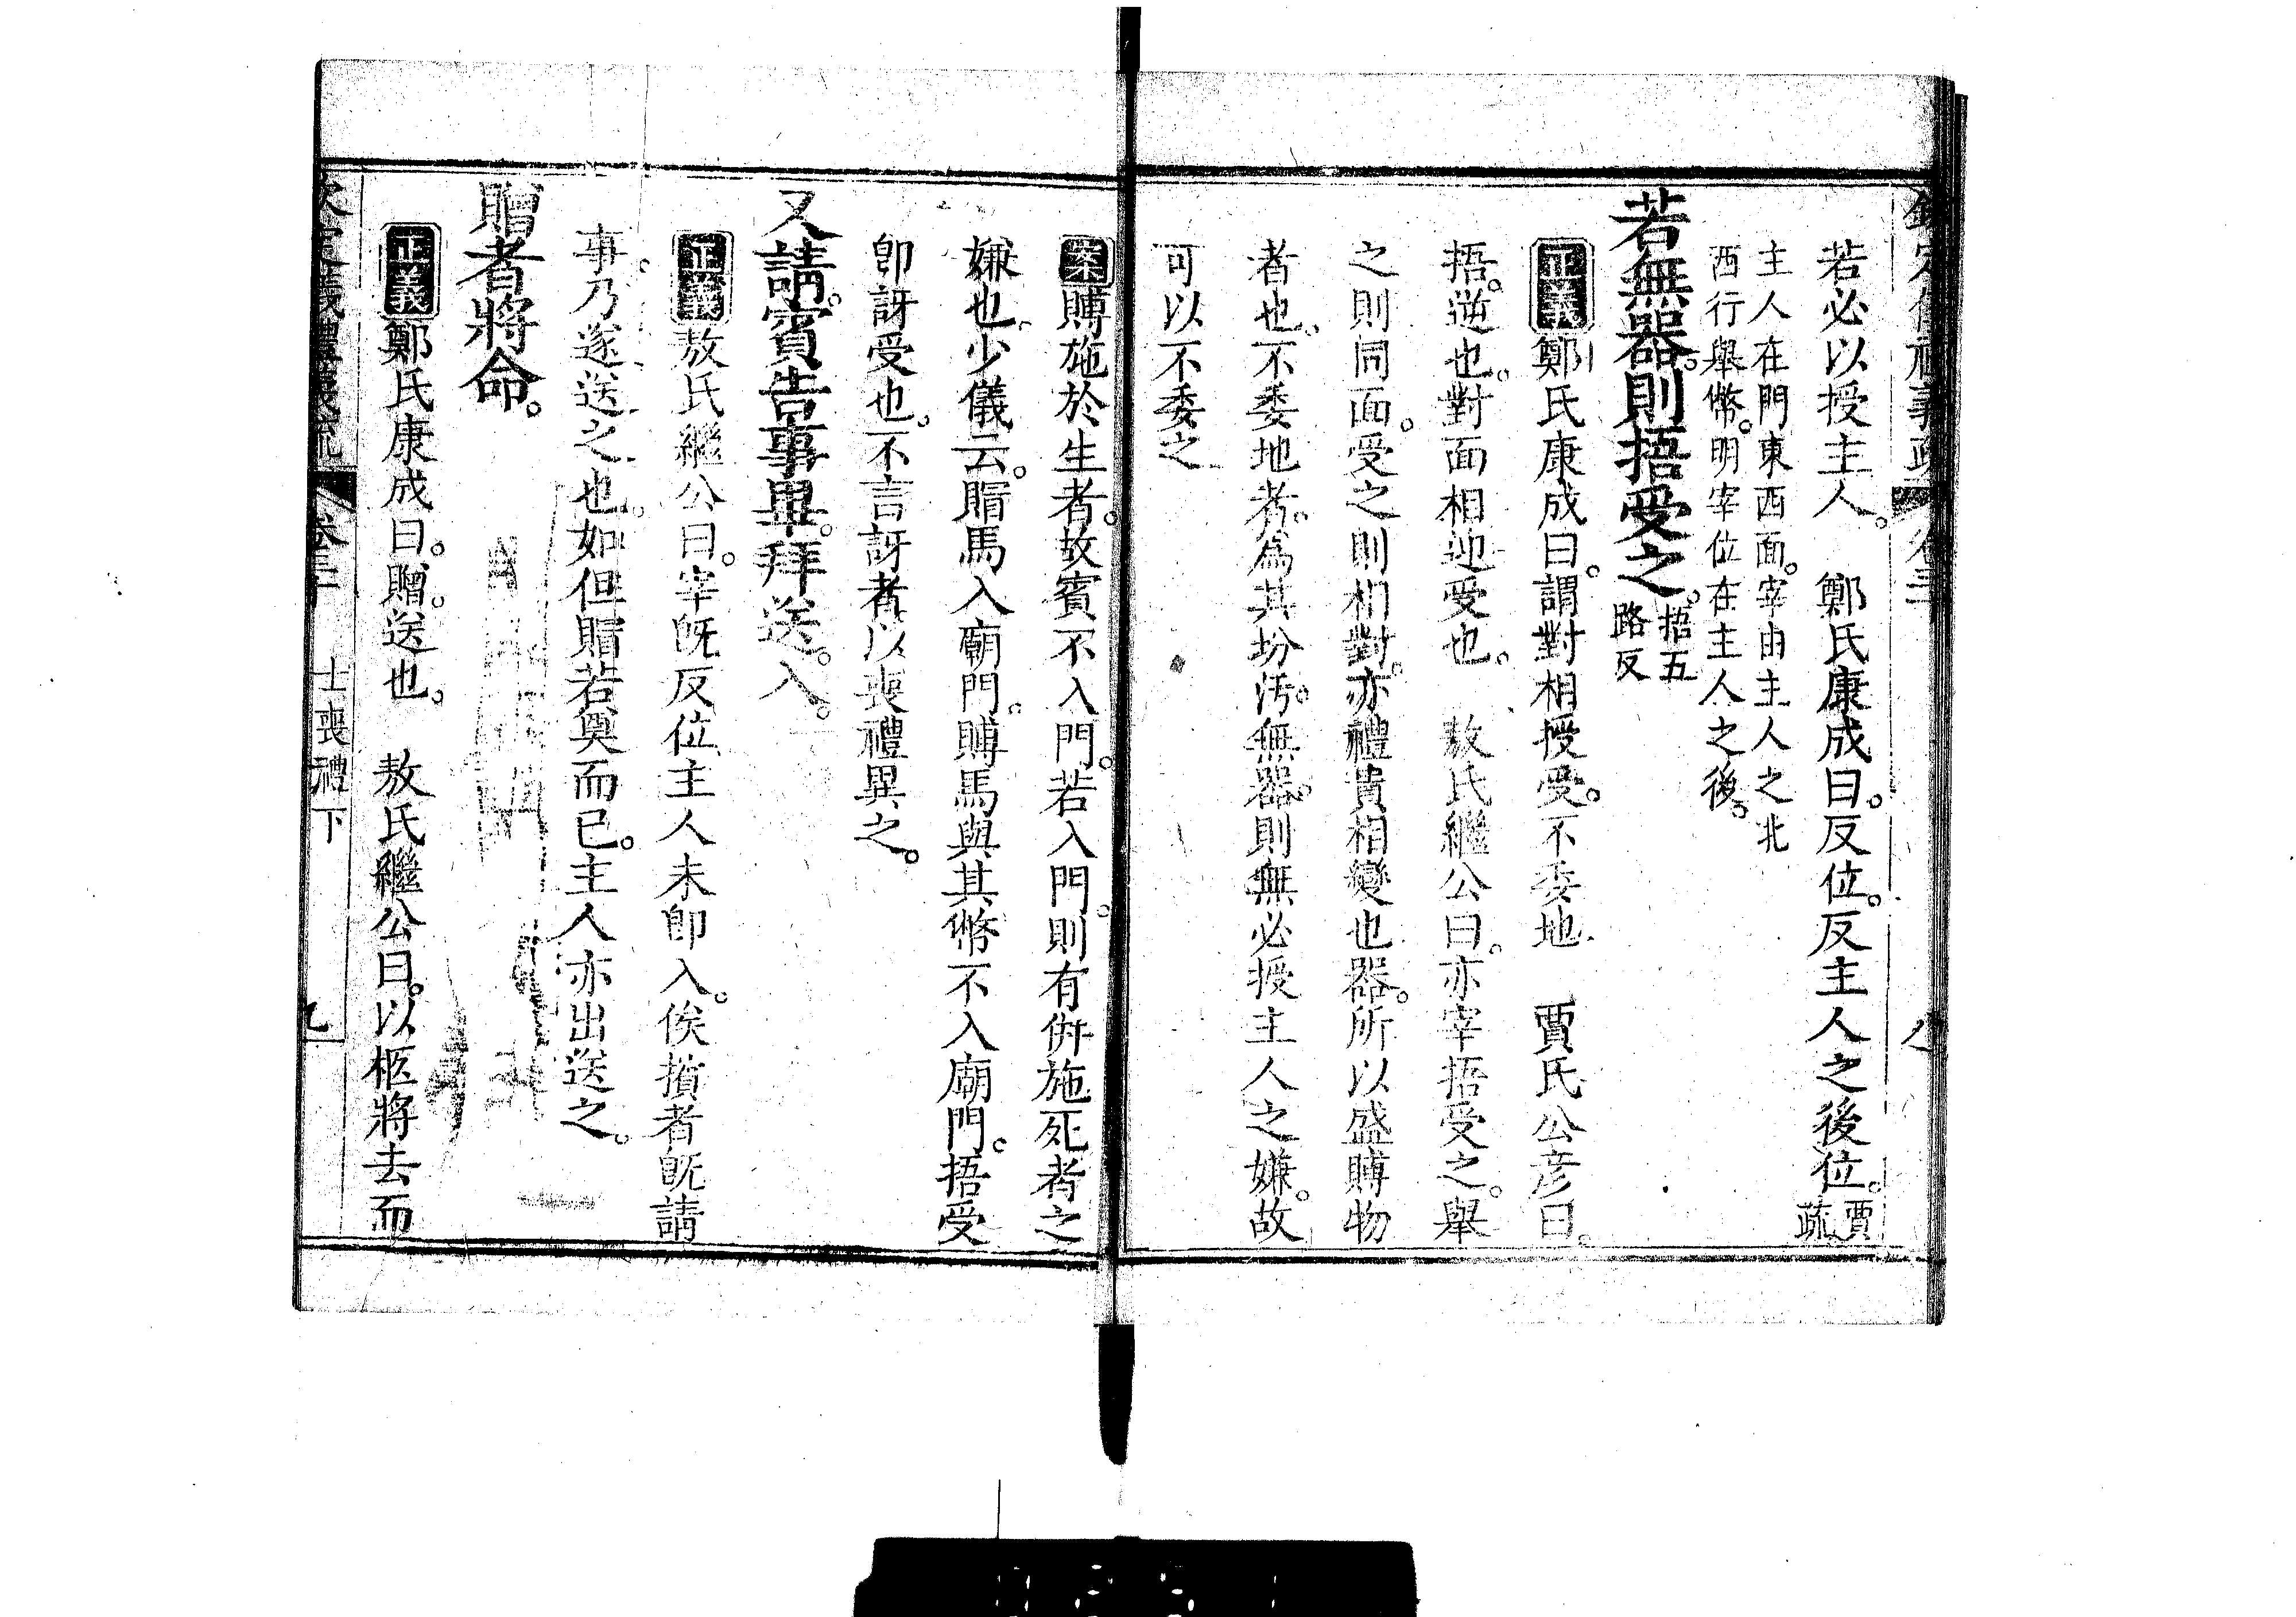 若必以授主人。　鄭氏康成曰。反位。反主人之後位。賈疏
主人在門東西面。宰由主人之北
西行舉幣。明宰位在主人之後。
若無器。則捂受之。捂五路反
正義鄭氏康成曰。謂對相授受。不委地　賈氏公彥曰。
捂。逆也。對面相逆受也。　敖氏繼公曰。亦宰捂受之。舉
之則同面。受之則相對。亦禮貴相變也。器。所以盛賻物
者也。不委地者。為其坋汚。無器。則無必授主人之嫌。故
可以不委之
案賻施於生者。故賓不入門。若入門。則有併施死者之
嫌也。少儀云。賵馬入廟門。賻馬與其幣不入廟門。捂受
卽訝受也。不言訝者。以喪禮異之。
又請。賓告事畢。拜送。入。
正義敖氏繼公曰。宰旣反位。主人未卽入。俟擯者旣請
事。乃遂送之也。如但賵若奠而已。主人亦出送之。
贈者將命。
正義鄭氏康成曰。贈。送也。　敖氏繼公曰。以柩將去而
士喪禮下